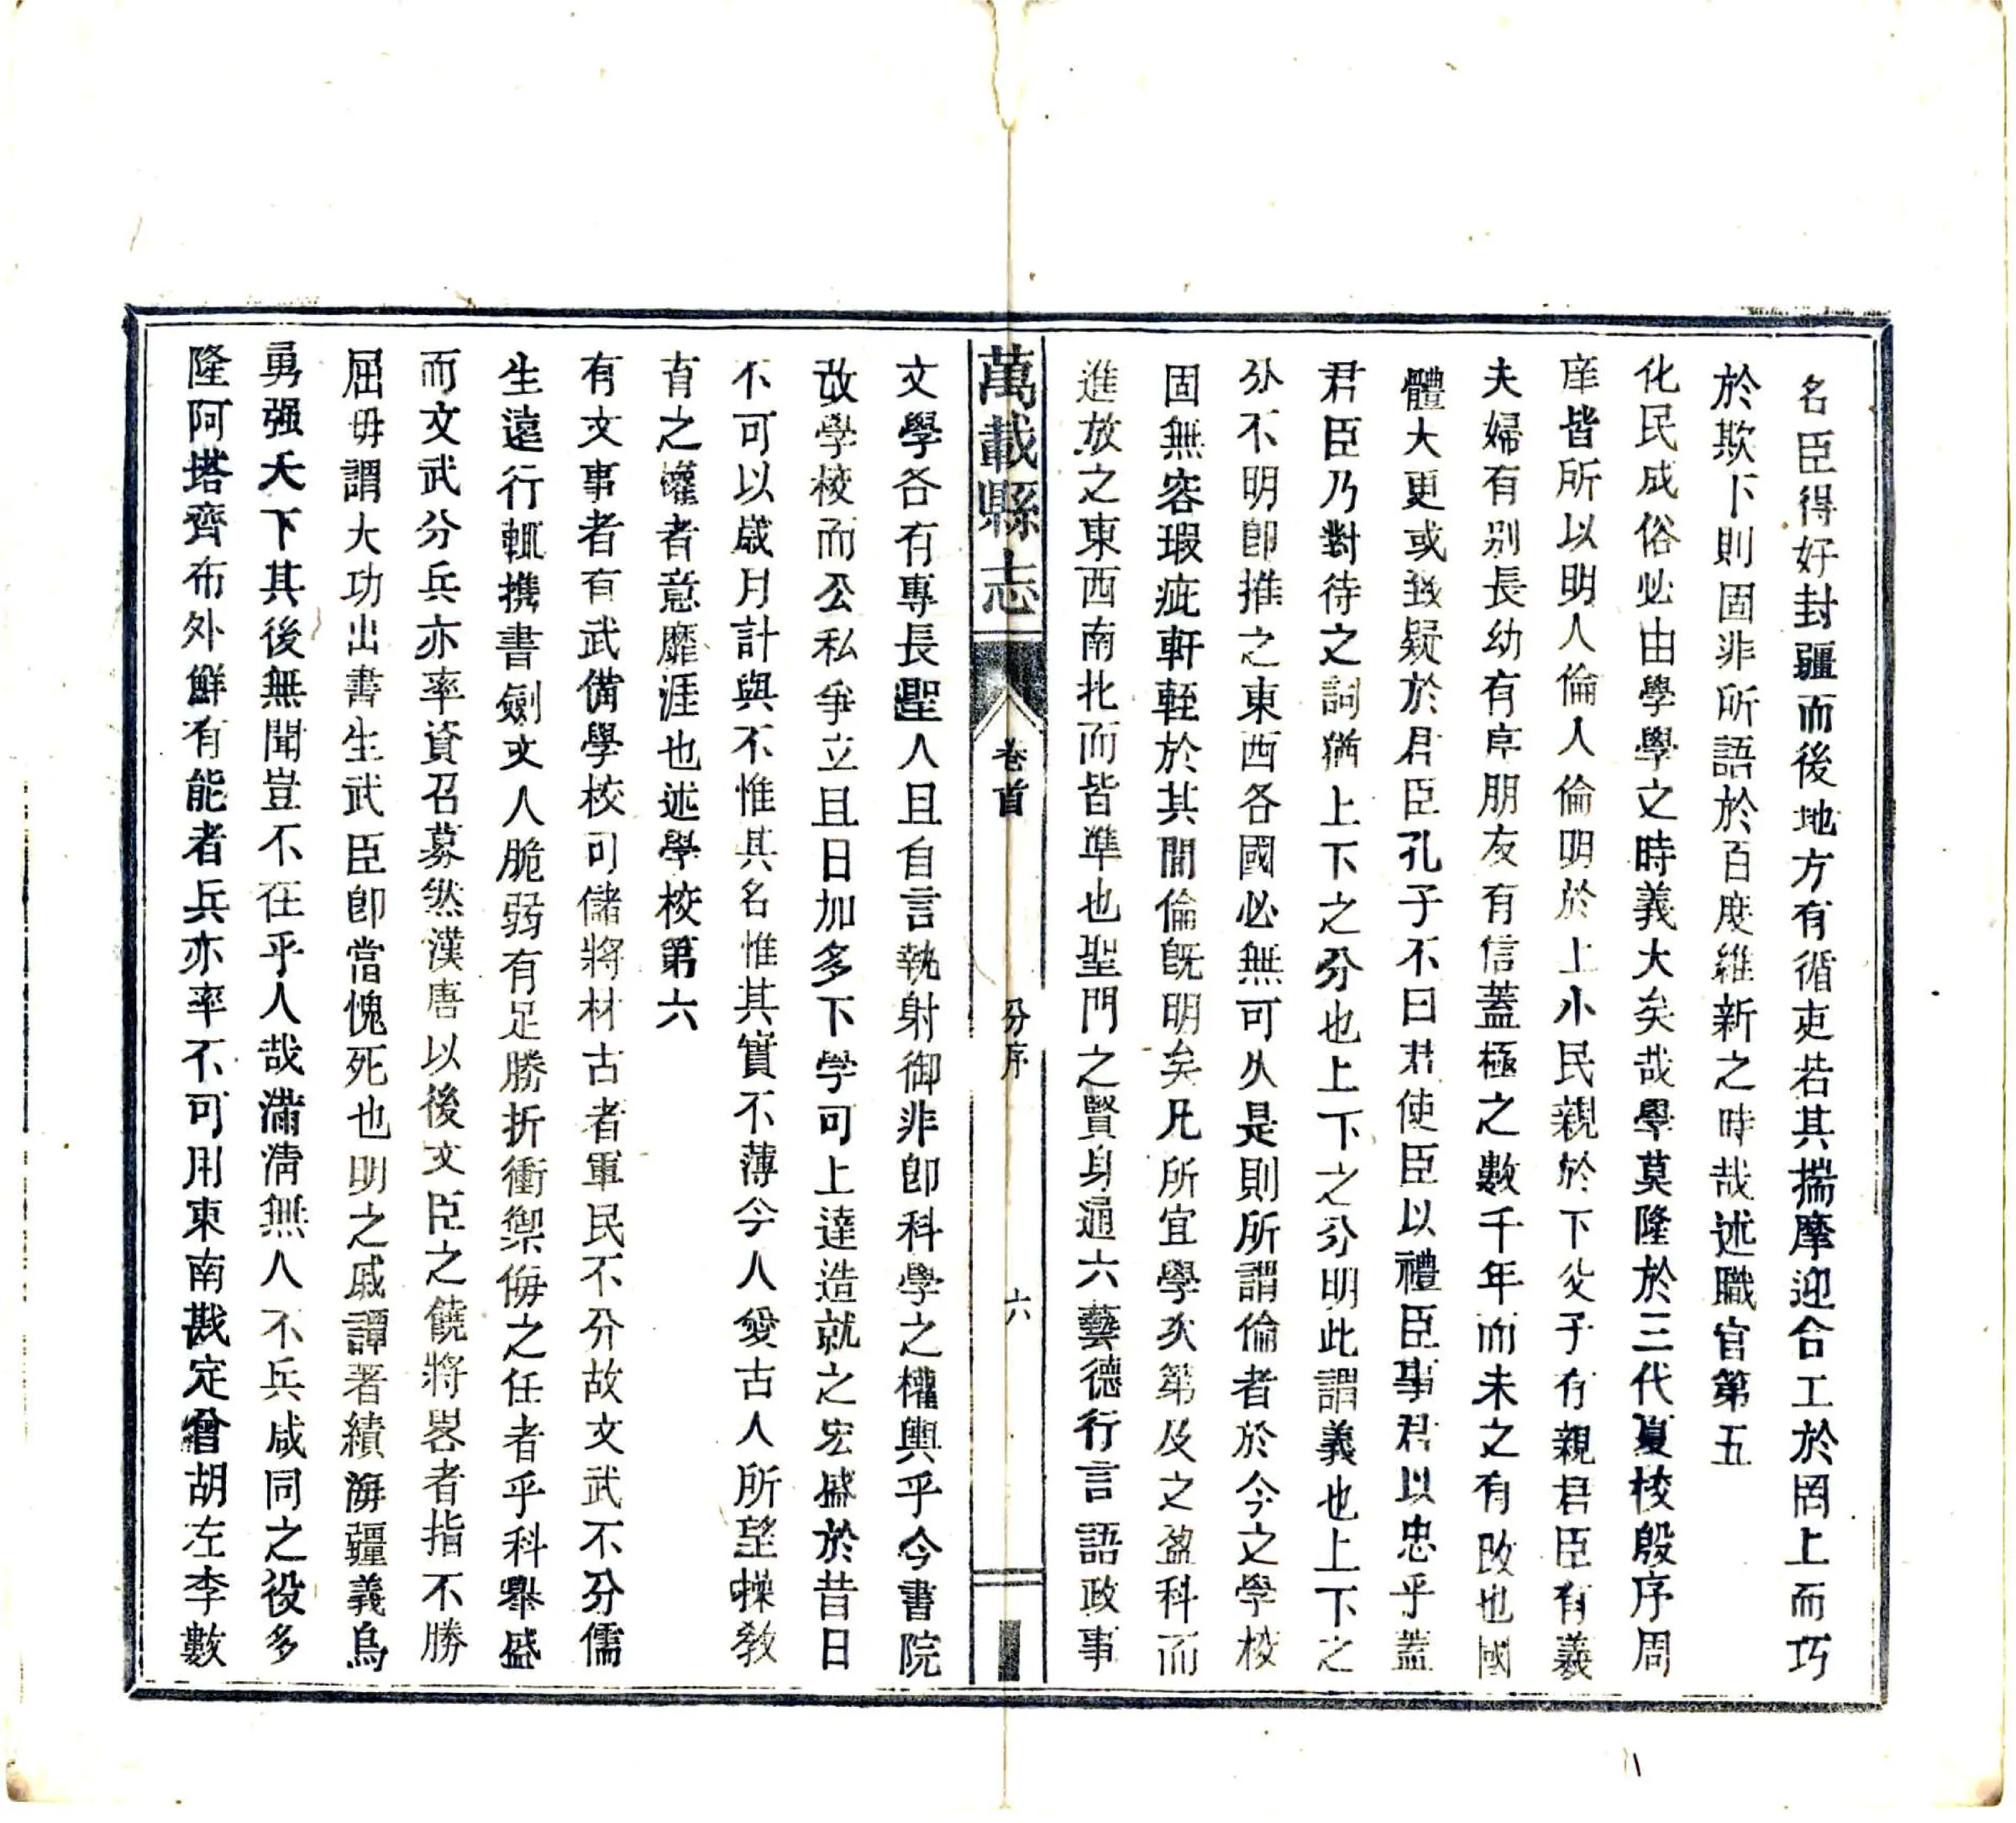 名臣得好封疆而後地方有循吏若其揣摩迎合工於罔上而巧
於欺下則固非所語於百度維新之時哉述職官第五
化民成俗必由學學之時義大矣哉學莫隆於三代夏校殷序周
庠皆所以明人倫人倫明於上小民親於下父子有親君臣有義
夫婦有别長幼有序朋友有信蓋極之數千年而未之有改也國
體大更或致疑於君臣孔子不曰君使臣以禮臣事君以忠乎蓋
君臣乃對待之詞猶上下之分也上下之分明此謂義也上下之
分不明卽推之東西各國必無可久是則所謂倫者於今之學校
固無容瑕疵軒輊於其間倫旣明矣凡所宜學次第及之盈科而
進放之東西南北而皆準也聖門之賢身通六藝德行言語政事
萬載縣志
卷首
分序
六
文學各有專長聖人且自言執射御非卽科學之權輿乎今書院
改學校而公私爭立且日加多下學可上達造就之宏盛於昔日
不可以歲月計與不惟其名惟其實不薄今人愛古人所望操教
育之權者意靡涯也述學校第六
有文事者有武備學校可儲將材古者軍民不分故文武不分儒
生遠行輒携書劍文人脆弱有足勝折衝禦侮之任者乎科舉盛
而文武分兵亦率資召募然漢唐以後文臣之饒將畧者指不勝
屈毋謂大功出書生武臣卽當愧死也明之戚譚著績海疆義烏
勇强天下其後無聞豈不在乎人哉滿清無人不兵咸同之役多
隆阿塔齊布外鮮有能者兵亦率不可用東南戡定曾胡左李數